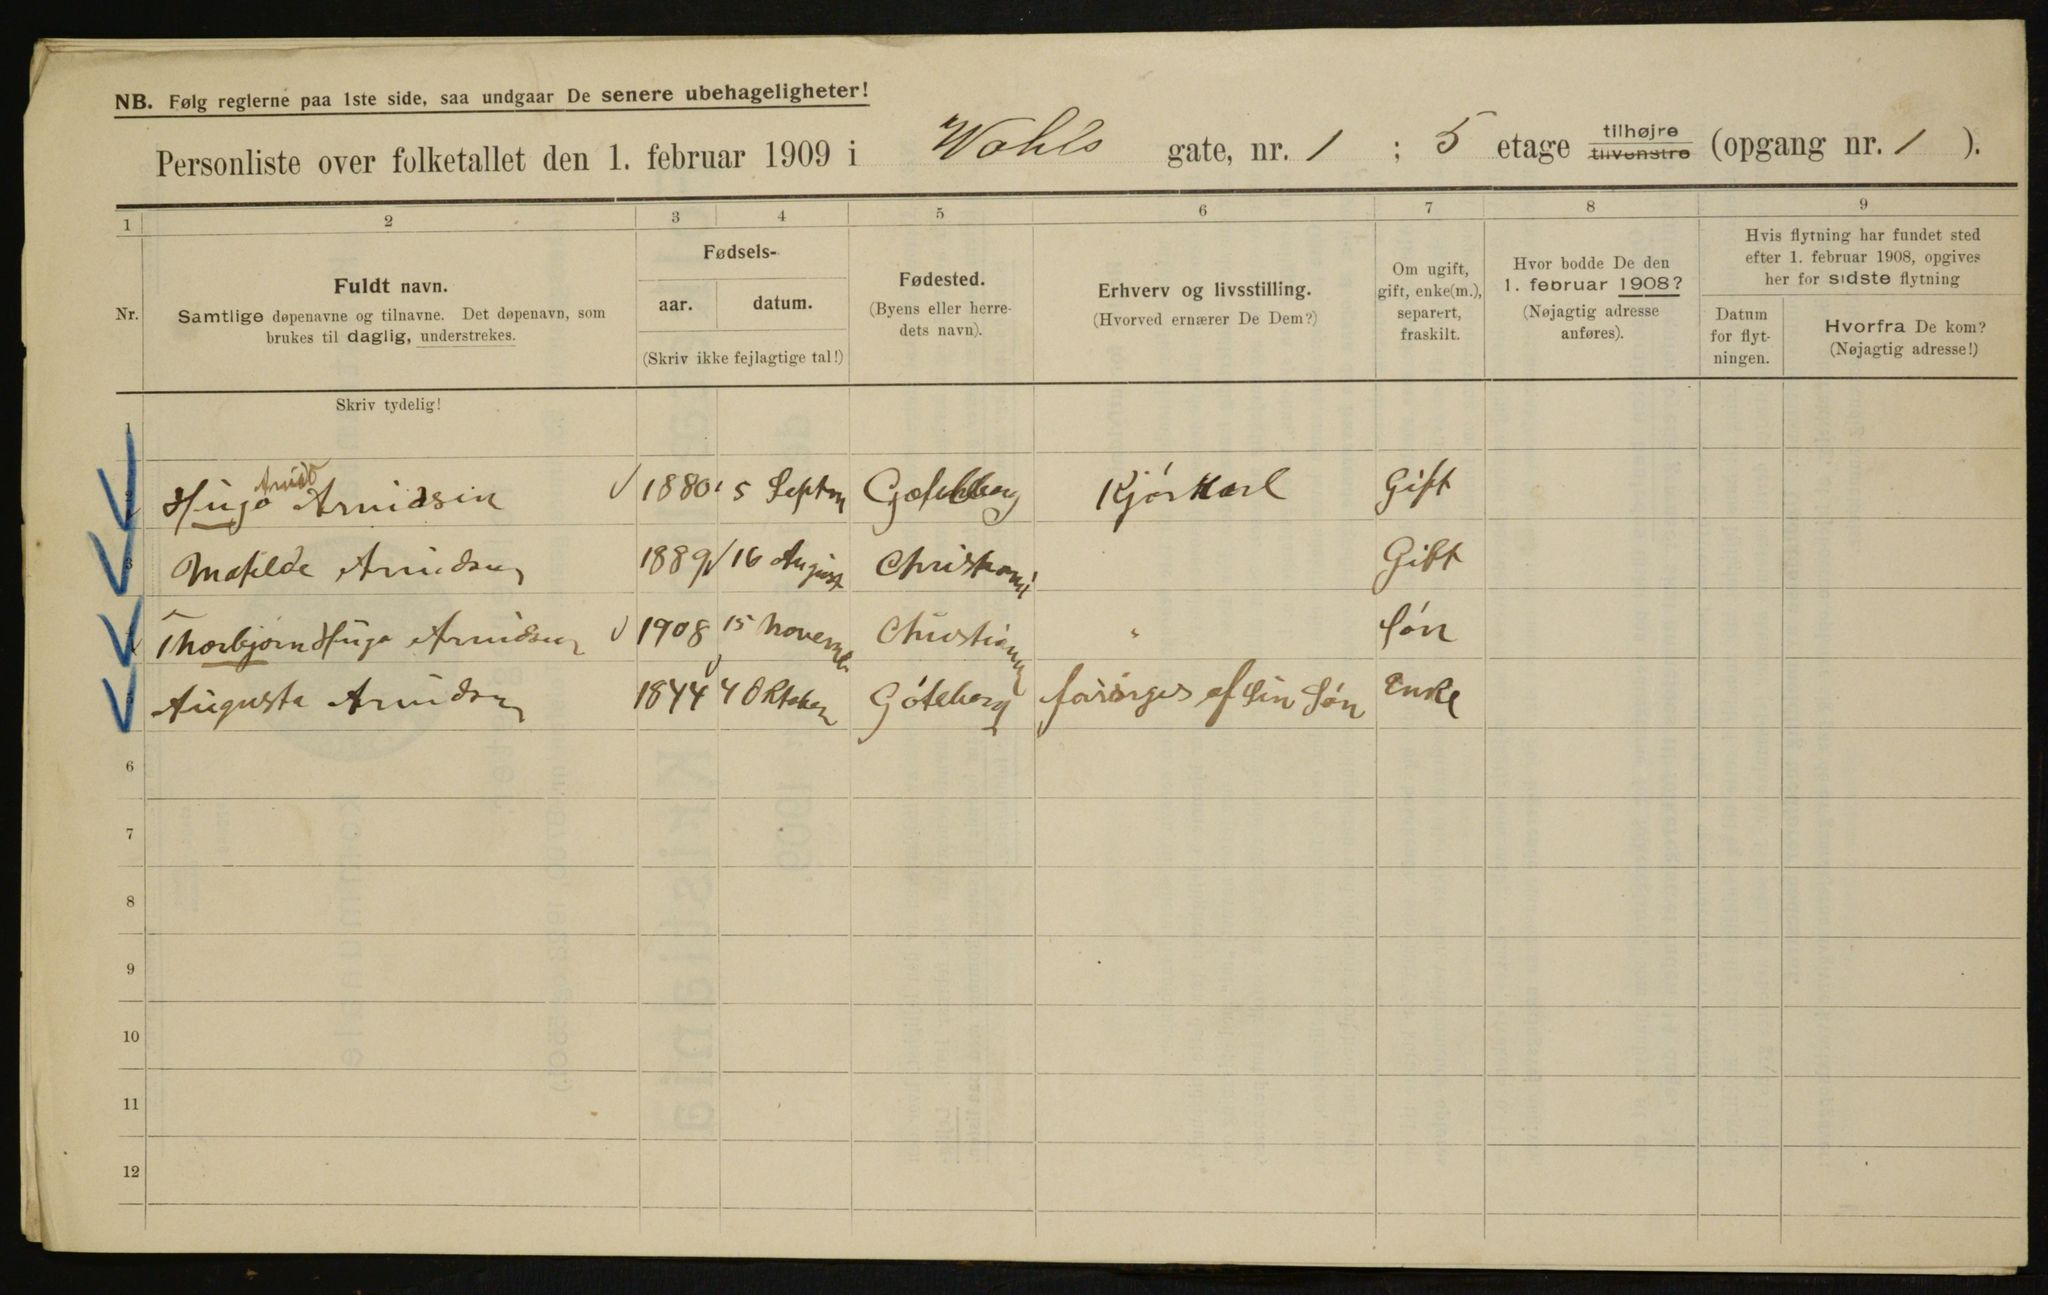 NB. Følg reglerne paa 1ste side, saa undgaar De senere ubehageligheter!
Personliste over folketallet den 1. februar 1909 i Wahls gate, nr. 1 ; 5 etage tilhøjre tilvenstre (opgang nr. 1 ).
1 2 3 4 5 6 7 8 9
Nr.
Fuldt navn.
Samtlige døpenavne og tilnavne. Det døpenavn, som
brukes til daglig, understrekes.
Fødsels-
aar. datum.
(Skriv ikke fejlagtige tal!)
Fødested.
(Byens eller herre-
dets navn).
Erhverv og livsstilling.
(Hvorved ernærer De Dem?)
Om ugift,
gift, enke(m.),
separert,
fraskilt.
Hvor bodde De den
1. februar 1908?
(Nøjagtig adresse
anføres).
Hvis flytning har fundet sted
efter 1. februar 1908, opgives
her for sidste flytning
Datum
for flyt-
ningen.
Hvorfra De kom?
(Nøjagtig adresse!)
Skriv tydelig!
1
Hugo Arnidsen 1880 5 Septm Gøteborg Kjørkarl Gift
3 Matilde Arnidsen 1889 16 August Christiania Gift
Thorbjørn Hugo Arnidsen 1908 15 November Christiania " Søn
Augusta Arnidsen 1844 4 Oktober Göteborg forsørges af sin Søn Enke
6
7
8
9
10
11
12